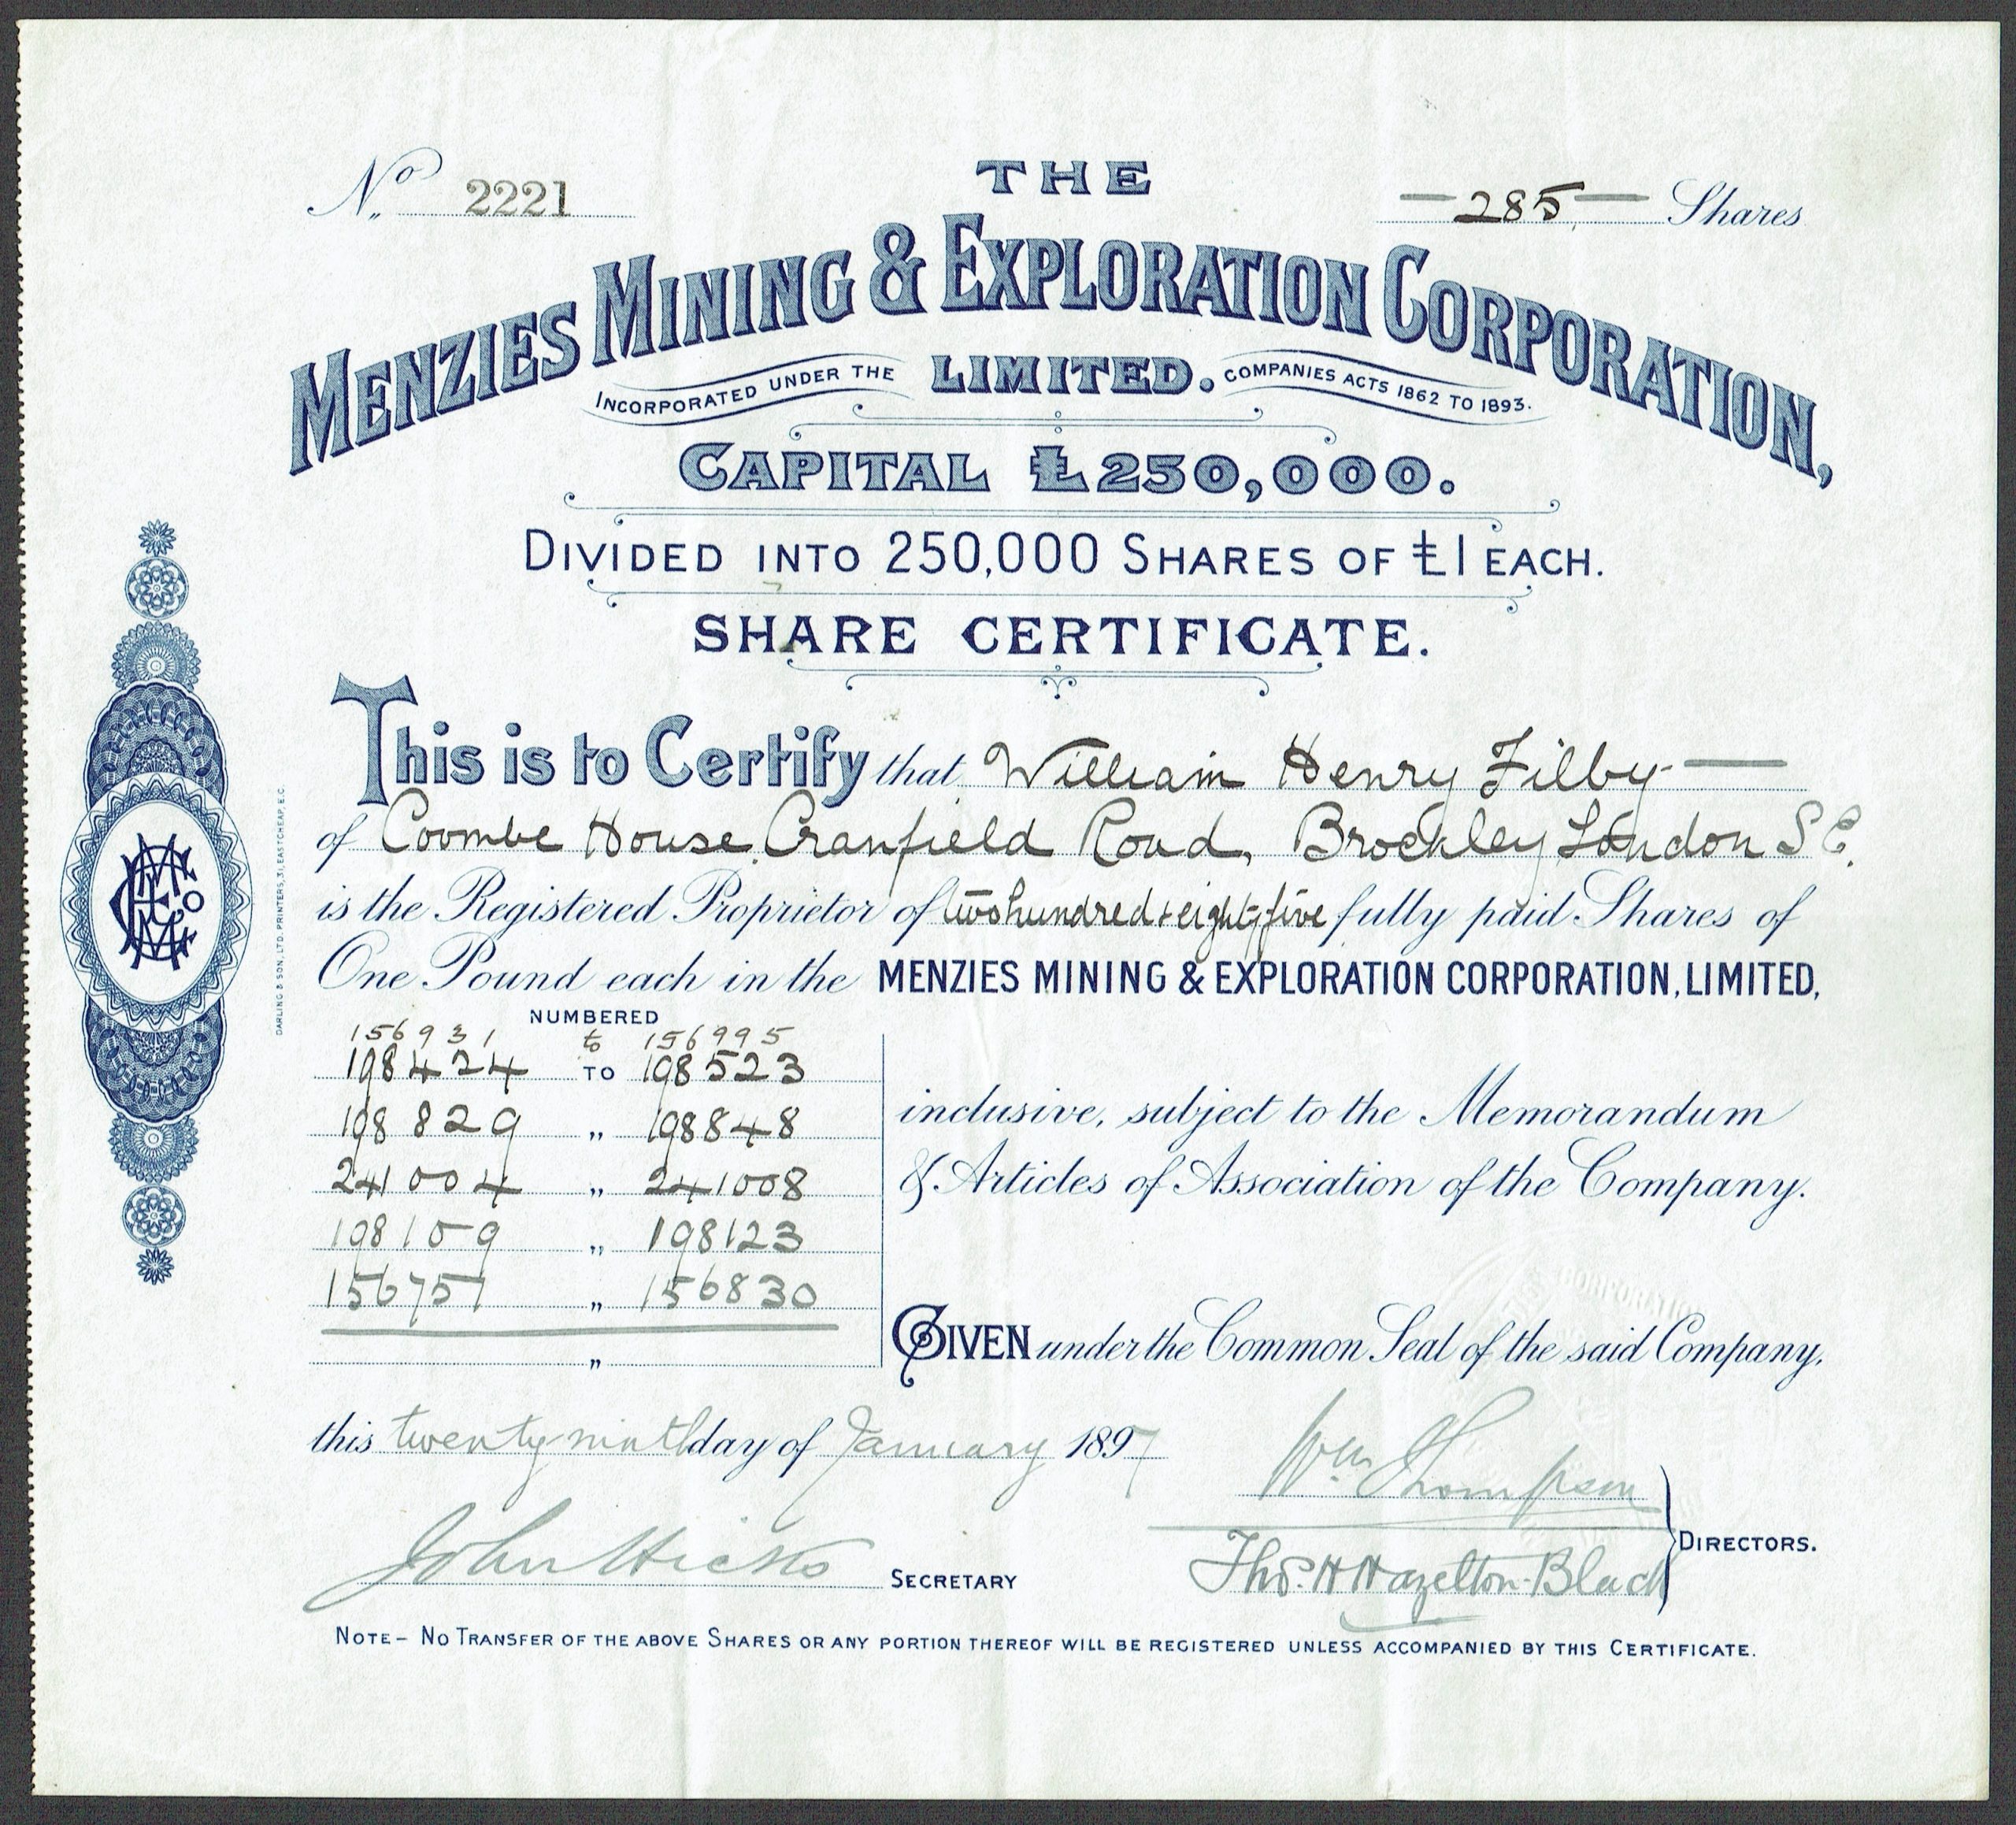 No 2221
THE
— 285 — Shares
MENZIES MINING & EXPLORATION CORPORATION,
INCORPORATED UNDER THE LIMITED. COMPANIES ACTS 1862 TO 1893.
CAPITAL £250,000.
DIVIDED INTO 250,000 SHARES OF £1 EACH.
SHARE CERTIFICATE.
This is to Certify that William Henry Filby —
of Coombe House, Cranfield Road, Brockley London S E.
is the Registered Proprietor of two hundred & eighty five fully paid Shares of
One Pound each in the MENZIES MINING & EXPLORATION CORPORATION, LIMITED,
NUMBERED
156931 to 156995
198424 TO 198523
198829 " 198848
241004 " 241008
198109 " 198123
156751 " 156830
"
inclusive, subject to the Memorandum
& Articles of Association of the Company.
GIVEN under the Common Seal of the said Company,
this twenty ninth day of January 1897
Wm Thompson
John Hicks SECRETARY
Thos. H Hazelton-Black
DIRECTORS.
NOTE – NO TRANSFER OF THE ABOVE SHARES OR ANY PORTION THEREOF WILL BE REGISTERED UNLESS ACCOMPANIED BY THIS CERTIFICATE.
DARLING & SON, LTD. PRINTERS, 31, EASTCHEAP, E.C.
CORPORATION